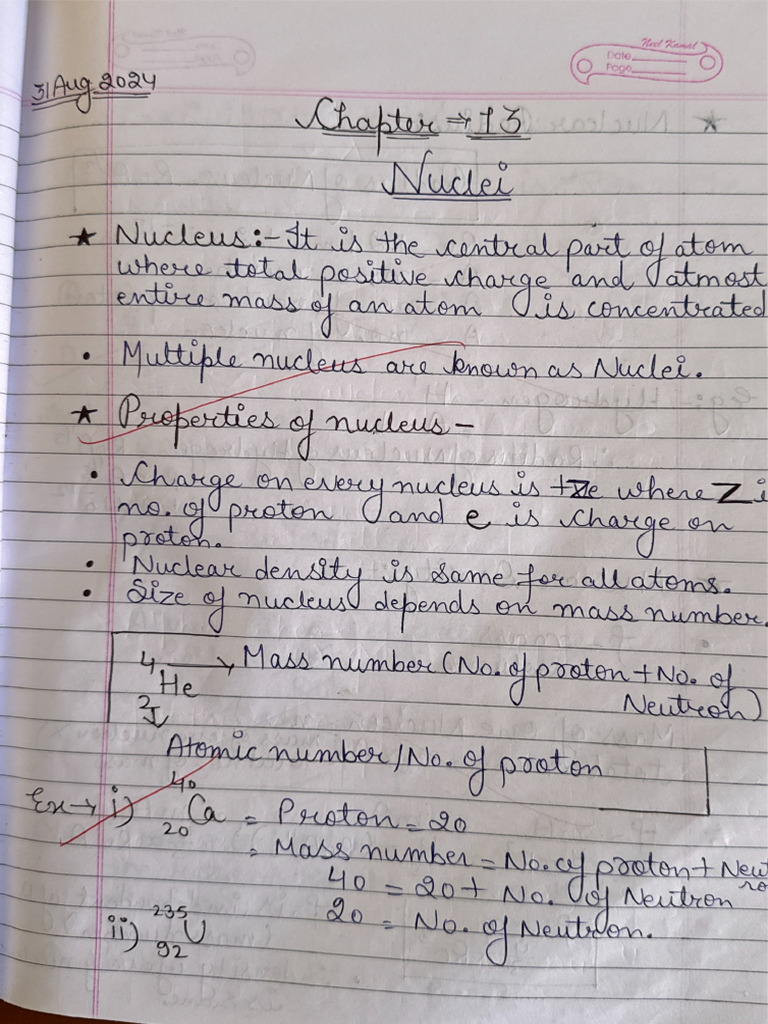 Neel Kamal
Date
Page
31 Aug 2024
Chapter ⇒ 13
Nuclei
★ Nucleus:- It is the central part of atom
where total positive charge and atmost
entire mass of an atom is concentrated
• Multiple nucleus are known as Nuclei.
★ Properties of nucleus -
• Charge on every nucleus is +Ze where Z i
no. of proton and e is charge on
proton.
• Nuclear density is same for all atoms.
• Size of nucleus depends on mass number.
4 → Mass number (No. of proton + No. of
He Neutron)
2 ↓
Atomic number / No. of proton
Ex → i) ⁴⁰₂₀Ca = Proton = 20
= Mass number = No. of proton + Neut
ro
40 = 20 + No. of Neutron
20 = No. of Neutron.
ii) ²³⁵₉₂U